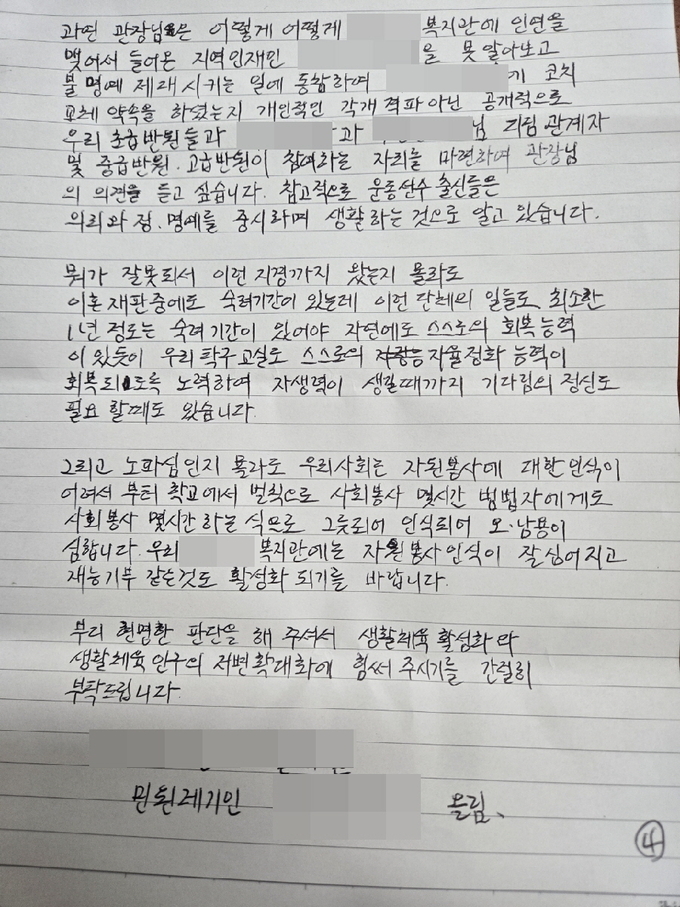 과연 관장님은 어떻게 어떻게 복지관에 인연을
맺어서 들어온 지역인재민 을 못 알아보고
불명예 제대 시키는 일에 동참하여 기 코치
교체 약속을 하셨는지 개인적인 각개격파 아닌 공개적으로
우리 초급반원들과 과 님 리팀 관계자
및 중급반원. 고급반원이 참여하는 자리를 마련하여 관장님
의 의견을 듣고 싶습니다. 참고적으로 운동선수 출신들은
의리와 정. 명예를 중시하며 생활하는것으로 알고 있습니다.
뭐가 잘못되서 이런 지경까지 왔는지 몰라도
이혼 재판중에도 숙려기간이 있는데 이런 단체의 일들도 최소한
1년 정도는 숙려기간이 있어야 자연에도 스스로의 회복능력
이 있듯이 우리 탁구교실도 스스로의 자율정화 능력이
회복되도록 노력하여 자생력이 생길때까지 기다림의 정신도
필요 할때도 있습니다.
그리고 노파심인지 몰라도 우리사회는 자원봉사에 대한 인식이
어려서 부터 학교에서 벌칙으로 사회봉사 몇시간 범법자에게도
사회봉사 몇시간 하는 식으로 그릇되어 인식되어 오.남용이
심합니다. 우리 복지관에는 자원봉사 인식이 잘 심어지고
재능기부 같은것도 활성화 되기를 바랍니다.
부디 현명한 판단을 해 주셔서 생활체육 활성화와
생활체육 인구의 저변확대화에 힘써 주시기를 간절히
부탁드립니다.
민원제기인 올림.
④